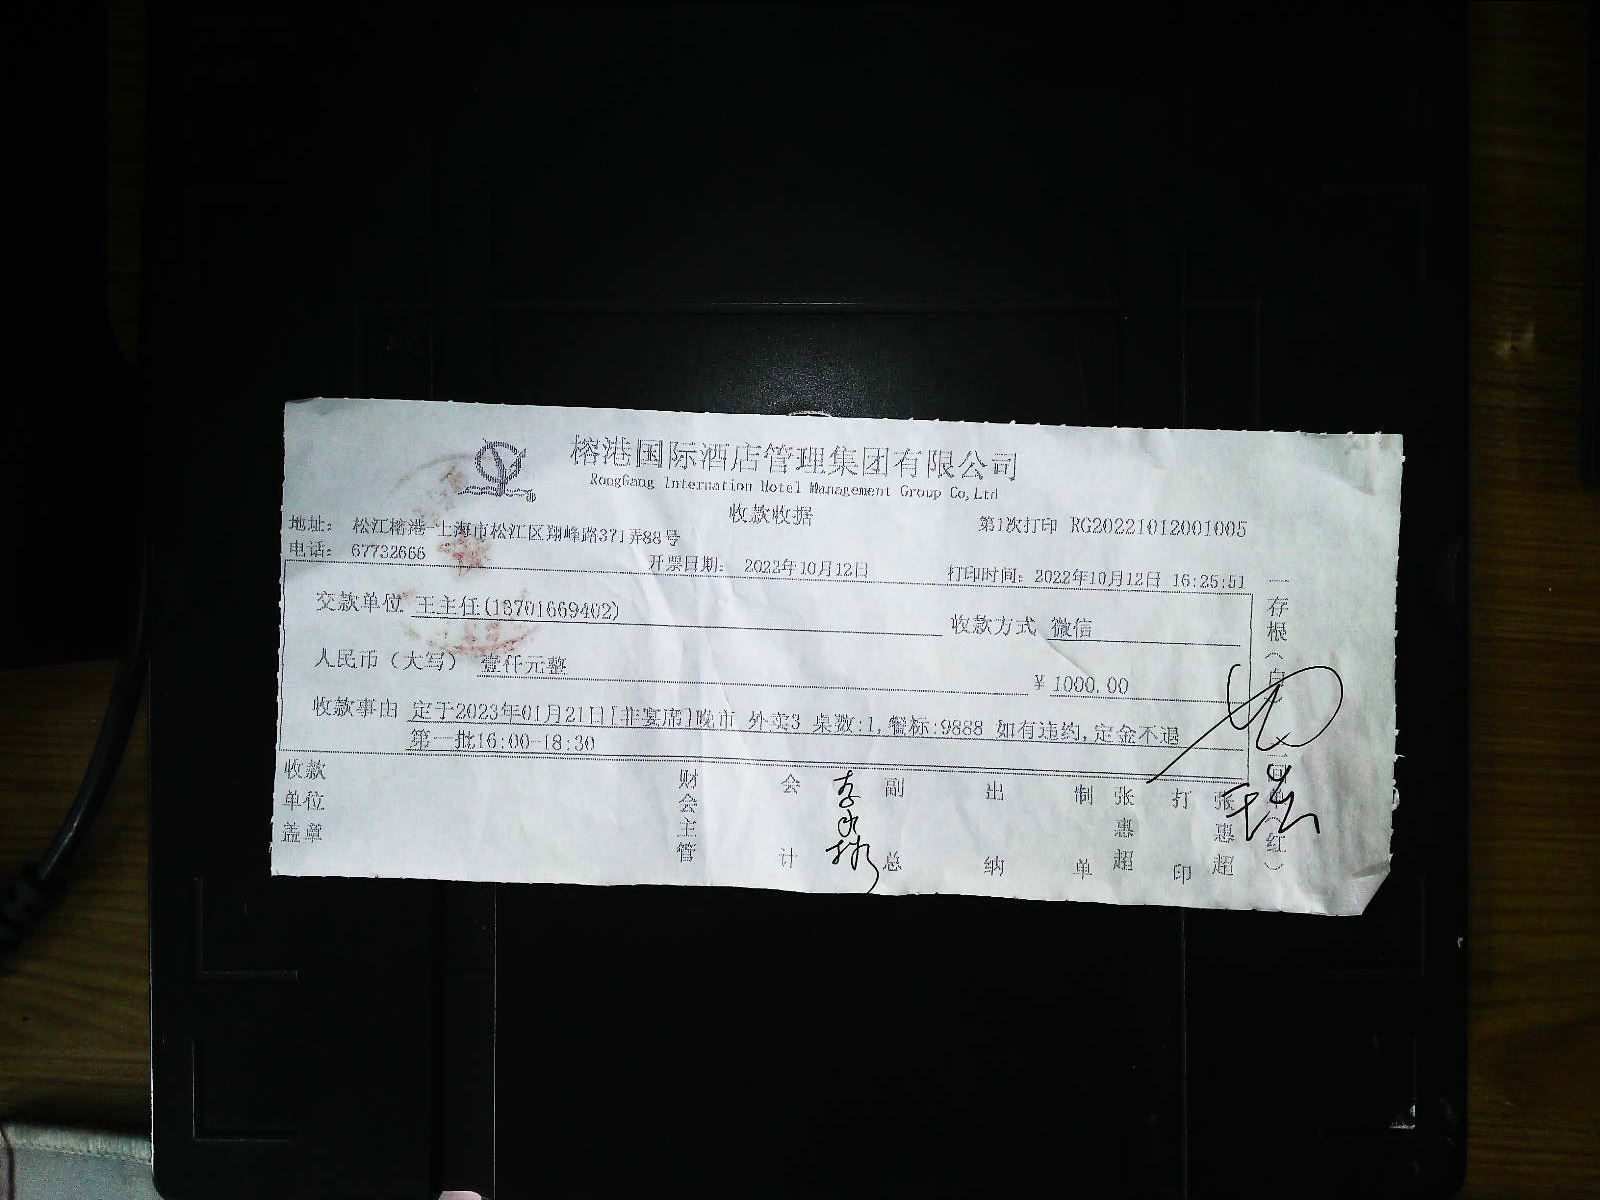 榕港国际酒店管理集团有限公司
RongGang Internation Hotel Management Group Co,Ltd
收款收据
第1次打印 RG20221012001005
地址： 松江榕港-上海市松江区翔峰路371弄88号
电话： 67732666
开票日期： 2022年10月12日
打印时间： 2022年10月12日 16:25:51
交款单位 王主任(13701669402)
收款方式 微信
人民币（大写） 壹仟元整
￥1000.00
收款事由 定于2023年01月21日[非宴席]晚市 外卖3 桌数:1,餐标:9888 如有违约,定金不退
第一批16:00-18:30
收款单位盖章
财会主管
会计
副总
出纳
制单 张惠超
打印 张惠超
一存根（白
（红）